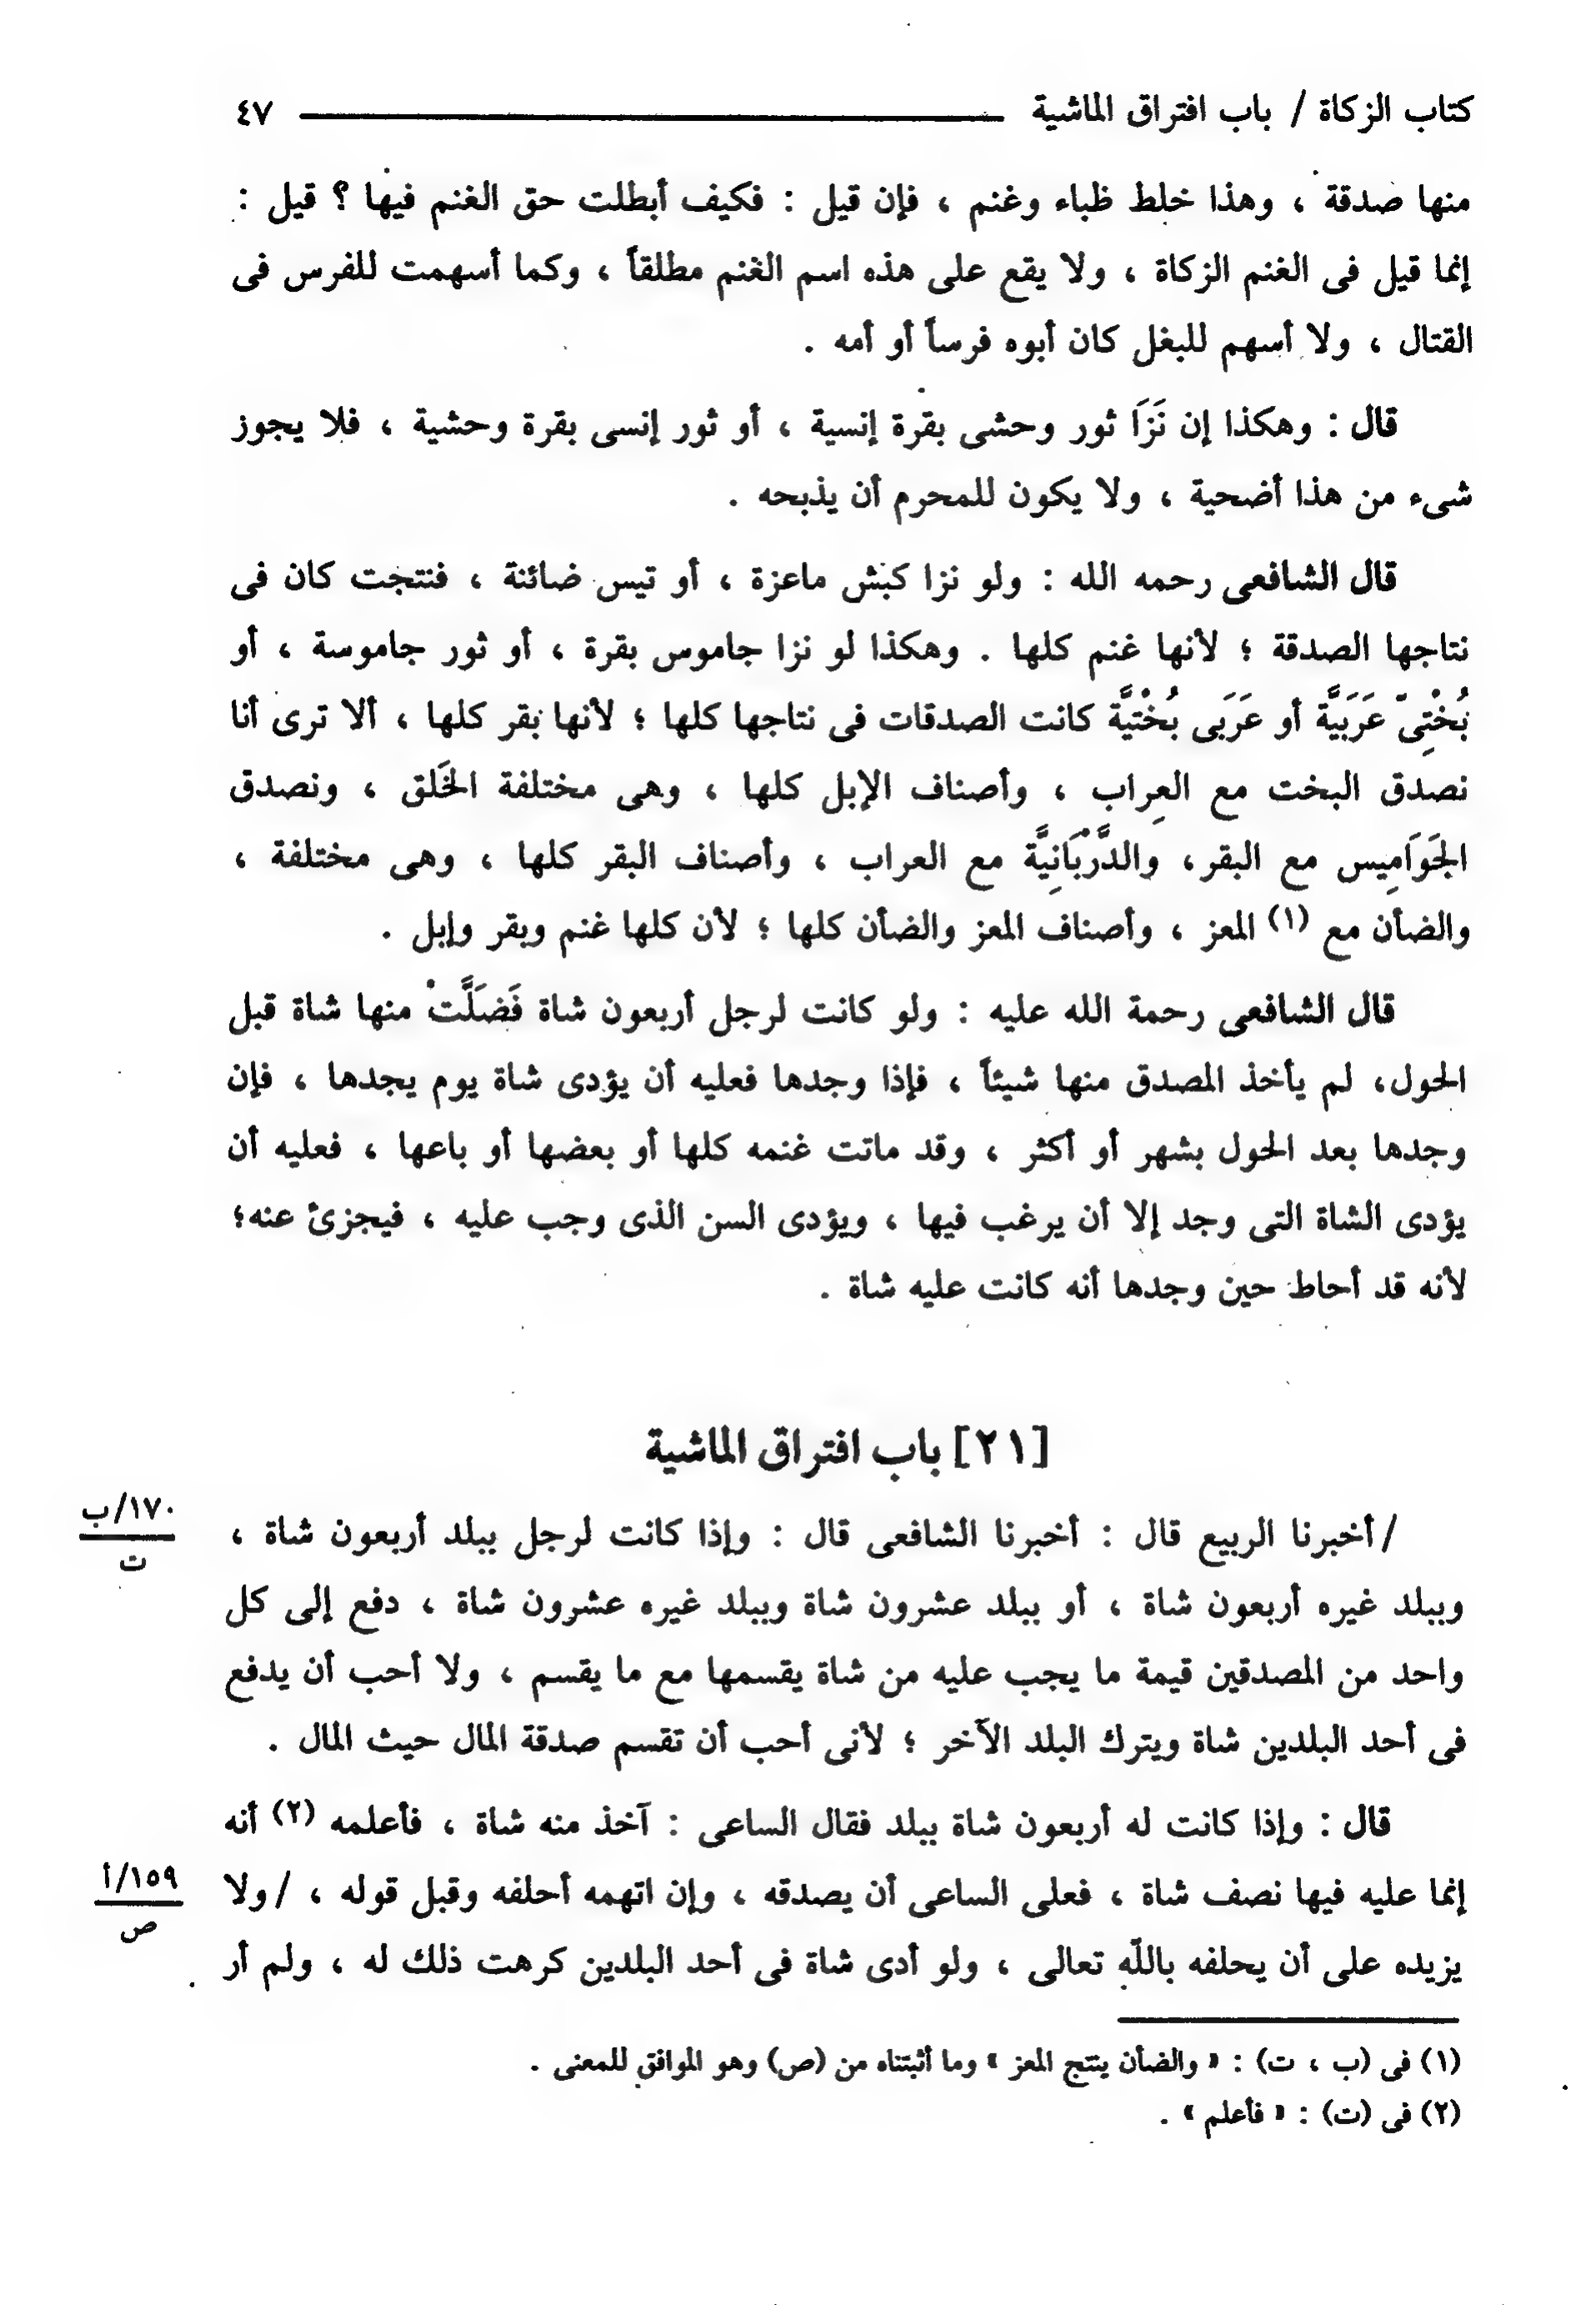 كتاب الزكاة / باب افتراق الماشية ٤٧
منها صدقة ، وهذا خلط ظباء وغنم ، فإن قيل : فكيف أبطلت حق الغنم فيها ؟ قيل :
إنما قيل فى الغنم الزكاة ، ولا يقع على هذه اسم الغنم مطلقاً ، وكما أسهمت للفرس فى
القتال ، ولا أسهم للبغل كان أبوه فرساً أو أمه .
قال : وهكذا إن نَزَا ثور وحشى بقرة إنسية ، أو ثور إنسى بقرة وحشية ، فلا يجوز
شىء من هذا أضحية ، ولا يكون للمحرم أن يذبحه .
قال الشافعى رحمه الله : ولو نزا كبش ماعزة ، أو تيس ضائنة ، فنتجت كان فى
نتاجها الصدقة ؛ لأنها غنم كلها . وهكذا لو نزا جاموس بقرة ، أو ثور جاموسة ، أو
بُخْتِىّ عَرَبَيَّة أو عَرَبَى بُخْتيَّة كانت الصدقات فى نتاجها كلها ؛ لأنها بقر كلها ، ألا ترى أنا
نصدق البخت مع العِراب ، وأصناف الإبل كلها ، وهى مختلفة الخَلق ، ونصدق
الجَوَامِيس مع البقر، والدَّرْبَانِيَّة مع العراب ، وأصناف البقر كلها ، وهى مختلفة ،
والضأن مع (١) المعز ، وأصناف المعز والضأن كلها ؛ لأن كلها غنم وبقر وإبل .
قال الشافعى رحمة الله عليه : ولو كانت لرجل أربعون شاة فَضَلَّتْ منها شاة قبل
الحول، لم يأخذ المصدق منها شيئاً ، فإذا وجدها فعليه أن يؤدى شاة يوم يجدها ، فإن
وجدها بعد الحول بشهر أو أكثر ، وقد ماتت غنمه كلها أو بعضها أو باعها ، فعليه أن
يؤدى الشاة التى وجد إلا أن يرغب فيها ، ويؤدى السن الذى وجب عليه ، فيجزئ عنه؛
لأنه قد أحاط حين وجدها أنه كانت عليه شاة .
[٢١] باب افتراق الماشية
/ أخبرنا الربيع قال : أخبرنا الشافعى قال : وإذا كانت لرجل ببلد أربعون شاة ،
١٧٠/ب
ت
وببلد غيره أربعون شاة ، أو ببلد عشرون شاة وببلد غيره عشرون شاة ، دفع إلى كل
واحد من المصدقين قيمة ما يجب عليه من شاة يقسمها مع ما يقسم ، ولا أحب أن يدفع
فى أحد البلدين شاة ويترك البلد الآخر ؛ لأنى أحب أن تقسم صدقة المال حيث المال .
قال : وإذا كانت له أربعون شاة ببلد فقال الساعى : آخذ منه شاة ، فأعلمه (٢) أنه
إنما عليه فيها نصف شاة ، فعلى الساعى أن يصدقه ، وإن اتهمه أحلفه وقبل قوله ، / ولا
١٥٩/أ
ص
يزيده على أن يحلفه باللّه تعالى ، ولو أدى شاة فى أحد البلدين كرهت ذلك له ، ولم أر
(١) فى (ب ، ت) : « والضأن ينتج المعز » وما أثبتناه من (ص) وهو الموافق للمعنى .
(٢) فى (ت) : « فأعلم » .